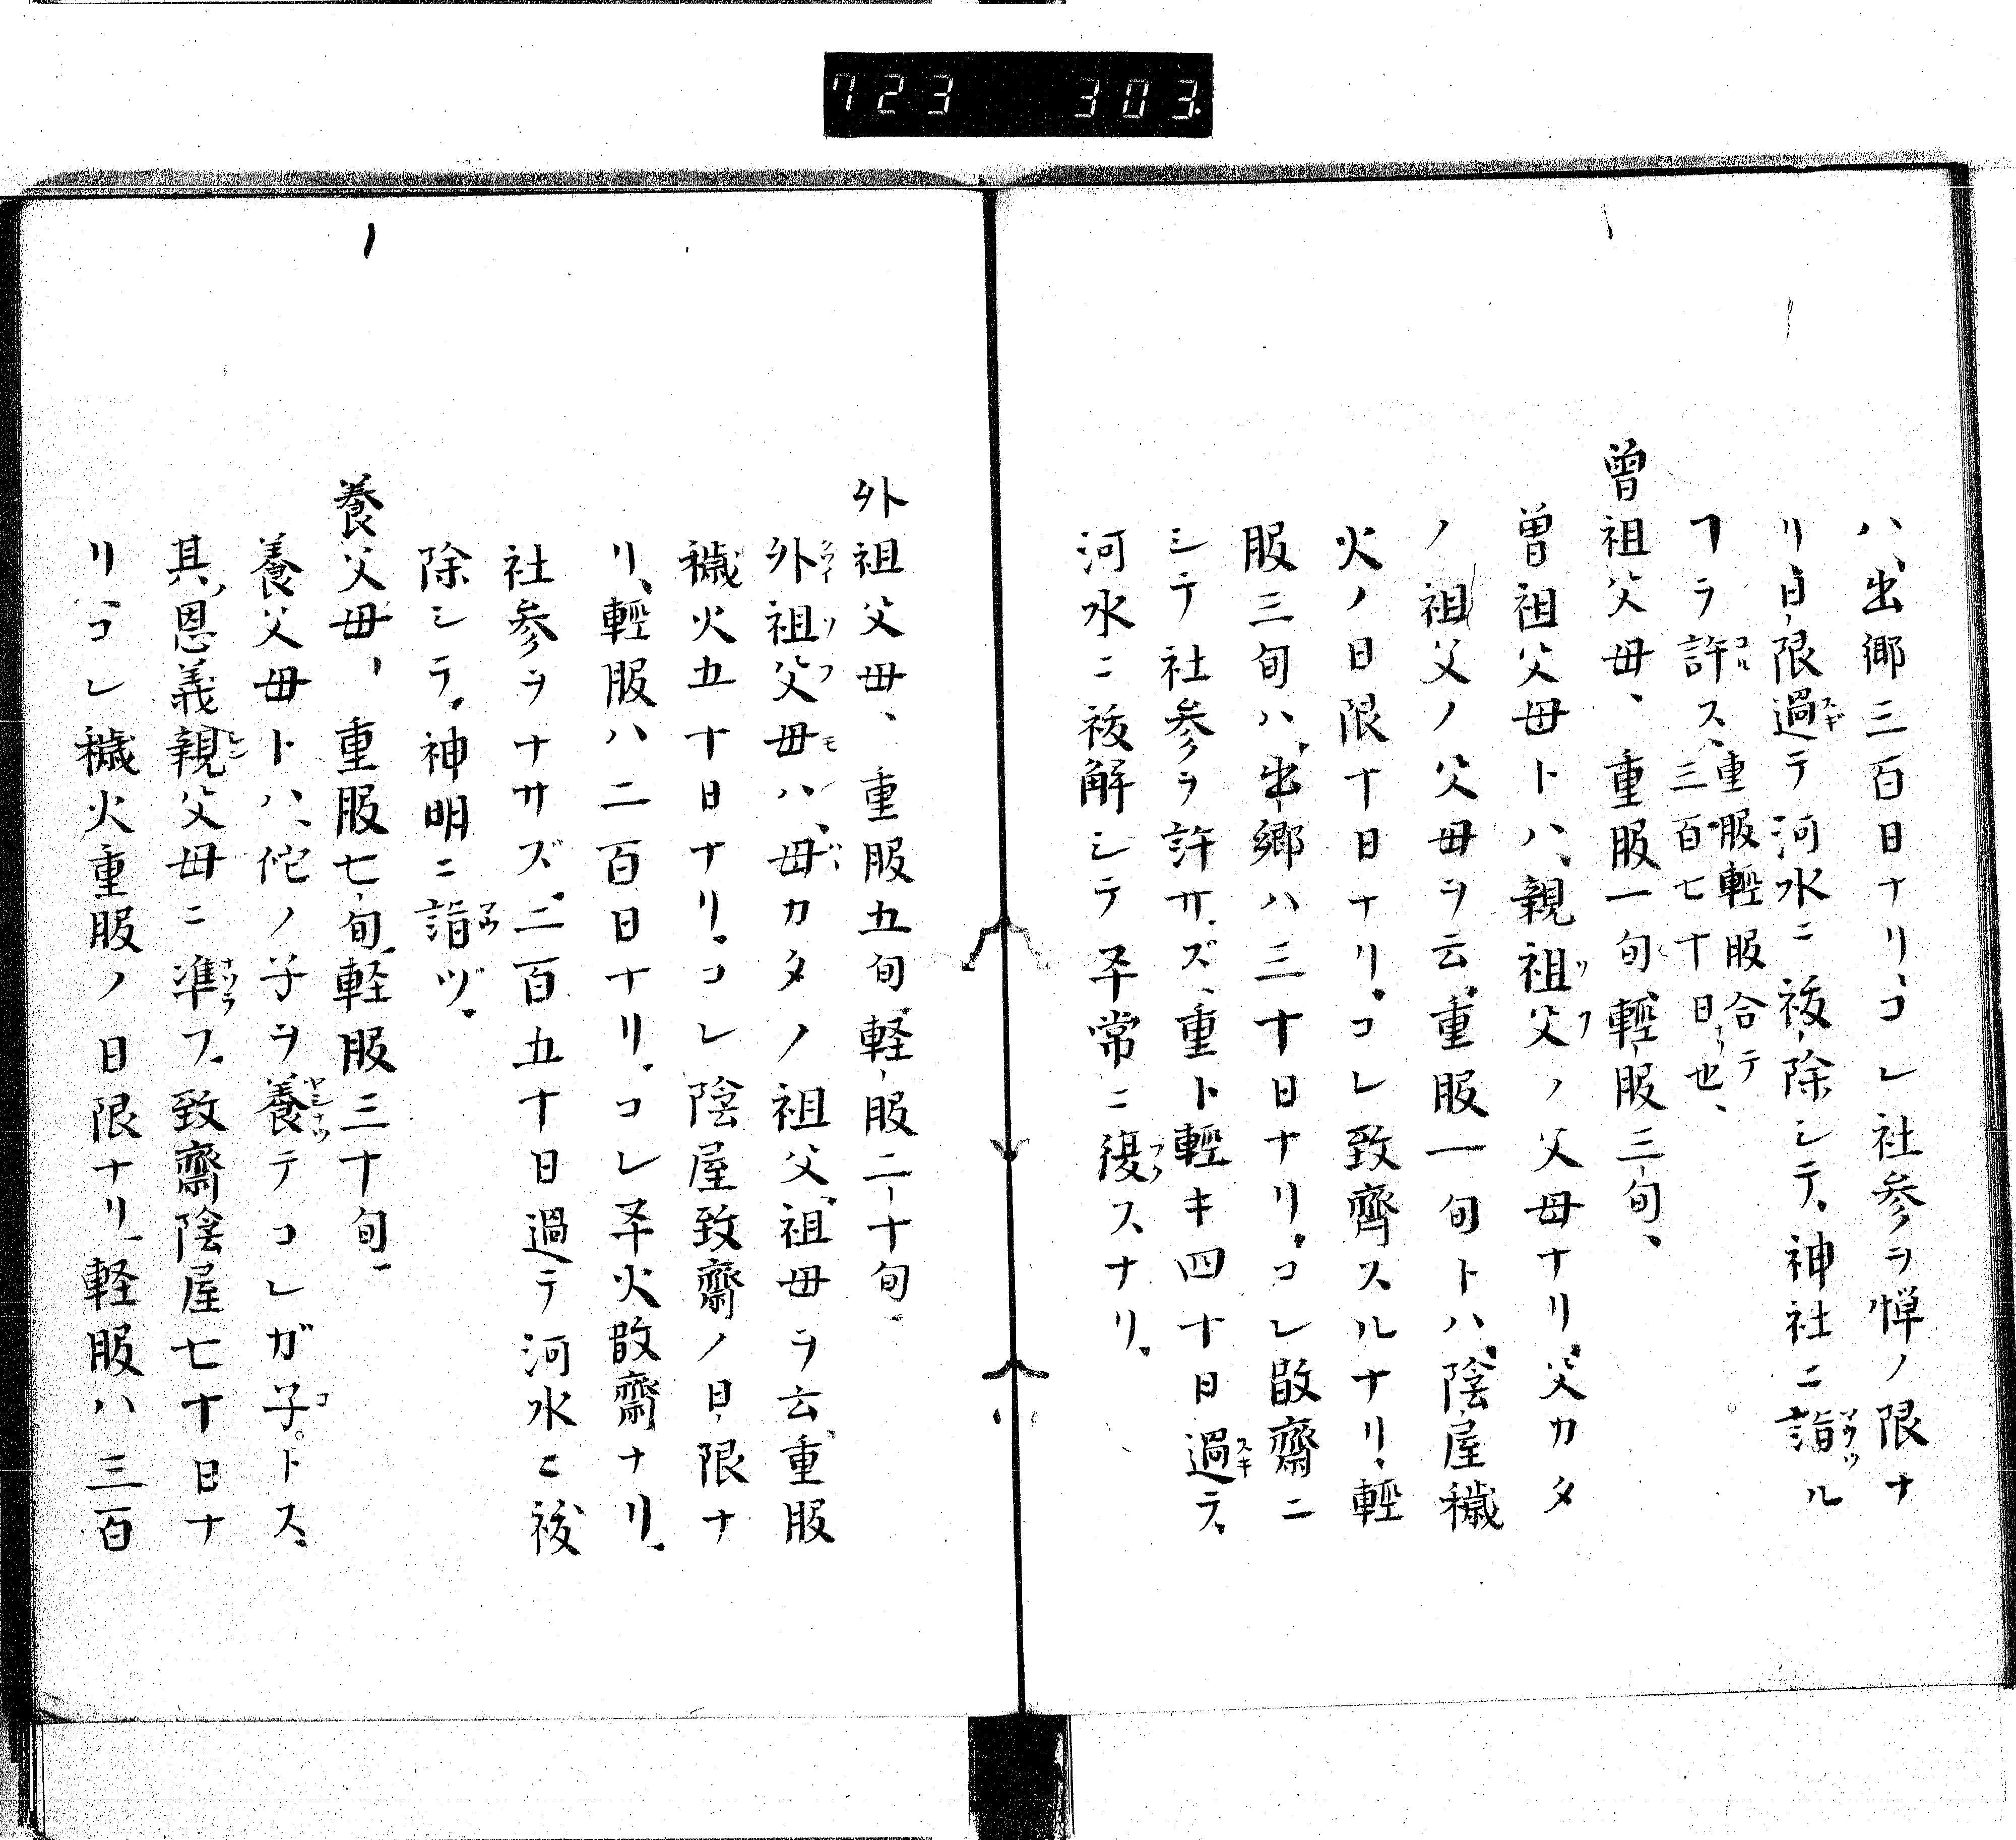 723 303
ハ、出郷三百日ナリ、コレ社参ヲ憚ノ限ナ
リ、日限過テ河水ニ祓除シテ、神社ニ詣ル
ヿヲ許ス、重服輕服合テ三百七十日也、
曽祖父母、重服一旬、輕服三旬、
曽祖父母トハ、親祖父ノ父母ナリ、父カタ
ノ祖父ノ父母ヲ云、重服一旬トハ、陰屋穢
火ノ日限十日ナリ、コレ致齊スルナリ、輕
服三旬ハ、出郷ハ三十日ナリ、コレ散齋ニ
シテ社参ヲ許サズ、重ト輕キ四十日過テ、
河水ニ祓解シテ平常ニ復スナリ、
外祖父母、重服五旬、軽服二十旬、
外祖父母ハ、母カタノ祖父、祖母ヲ云、重服
穢火五十日ナリ、コレ陰屋致齋ノ日限ナ
リ、輕服ハ二百日ナリ、コレ平火散齋ナリ、
社参ヲナサズ、二百五十日過テ河水ニ祓
除シテ、神明ニ詣ヅ、
養父母、重服七旬、軽服三十旬、
養父母トハ、佗ノ子ヲ養テコレガ子トス、
其恩義親父母ニ準フ、致齋陰屋七十日ナ
リ、コレ穢火重服ノ日限ナリ、軽服ハ三百